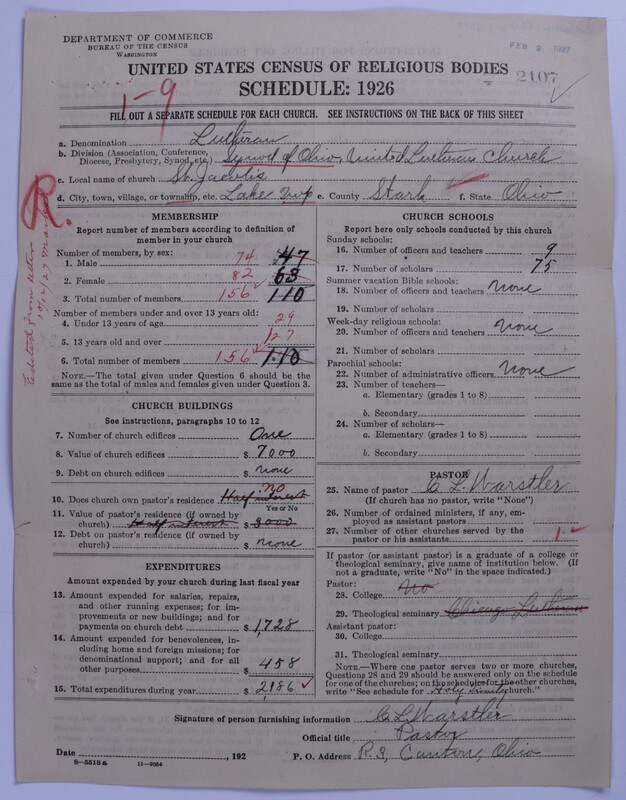 DEPARTMENT OF COMMERCE
BUREAU OF THE CENSUS
WASHINGTON
FEB 2 1927
UNITED STATES CENSUS OF RELIGIOUS BODIES
2107
SCHEDULE: 1926
1-9
FILL OUT A SEPARATE SCHEDULE FOR EACH CHURCH. SEE INSTRUCTIONS ON THE BACK OF THIS SHEET
a. Denomination Lutheran
b. Division (Association, Conference, Diocese, Presbytery, Synod, etc.) Synod of Ohio, United Lutheran Church
c. Local name of church St. Jacobs
d. City, town, village, or township, etc. Lake Twp e. County Stark f. State Ohio
R.
Edited from letter
MEMBERSHIP
Report number of members according to definition of member in your church
Number of members, by sex:
1. Male 74 47
2. Female 82 63
3. Total number of members 156 110
Number of members under and over 13 years old:
4. Under 13 years of age 29
5. 13 years old and over 127
6. Total number of members 156 110
NOTE.—The total given under Question 6 should be the same as the total of males and females given under Question 3.
CHURCH BUILDINGS
See instructions, paragraphs 10 to 12
7. Number of church edifices One
8. Value of church edifices $ 7000
9. Debt on church edifices $ none
10. Does church own pastor's residence Half interest no
Yes or No
11. Value of pastor's residence (if owned by church) Half interest $ 3000
12. Debt on pastor's residence (if owned by church) $ none
EXPENDITURES
Amount expended by your church during last fiscal year
13. Amount expended for salaries, repairs, and other running expenses; for improvements or new buildings; and for payments on church debt $ 1,728
14. Amount expended for benevolences, including home and foreign missions; for denominational support; and for all other purposes $ 458
15. Total expenditures during year $ 2186
CHURCH SCHOOLS
Report here only schools conducted by this church
Sunday schools:
16. Number of officers and teachers 9
17. Number of scholars 75
Summer vacation Bible schools:
18. Number of officers and teachers none
19. Number of scholars
Week-day religious schools:
20. Number of officers and teachers none
21. Number of scholars
Parochial schools:
22. Number of administrative officers none
23. Number of teachers—
a. Elementary (grades 1 to 8)
b. Secondary
24. Number of scholars—
a. Elementary (grades 1 to 8)
b. Secondary
PASTOR
25. Name of pastor C. L. Warstler
(If church has no pastor, write "None")
26. Number of ordained ministers, if any, employed as assistant pastors
27. Number of other churches served by the pastor or his assistants 1
If pastor (or assistant pastor) is a graduate of a college or theological seminary, give name of institution below. (If not a graduate, write "No" in the space indicated.)
Pastor:
28. College No
29. Theological seminary Chicago Lutheran
Assistant pastor:
30. College
31. Theological seminary
NOTE.—Where one pastor serves two or more churches, Questions 28 and 29 should be answered only on the schedule for one of the churches; on the schedules for the other churches, write "See schedule for Holy Trinity church."
Signature of person furnishing information C L Warstler
Official title Pastor
Date , 192 P. O. Address R. 3, Canton, Ohio
8-5518 a 11-9084